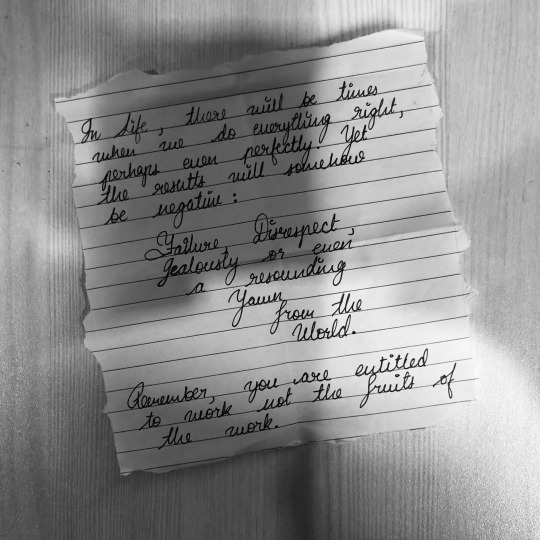 In life, there will be times
when we do everything right,
perhaps even perfectly. Yet
the results will somehow
be negative:
Failure, Disrespect,
Jealously or even
a resounding
Yawn
from the
World.
Remember, you are entitled
to work not the fruits of
the work.